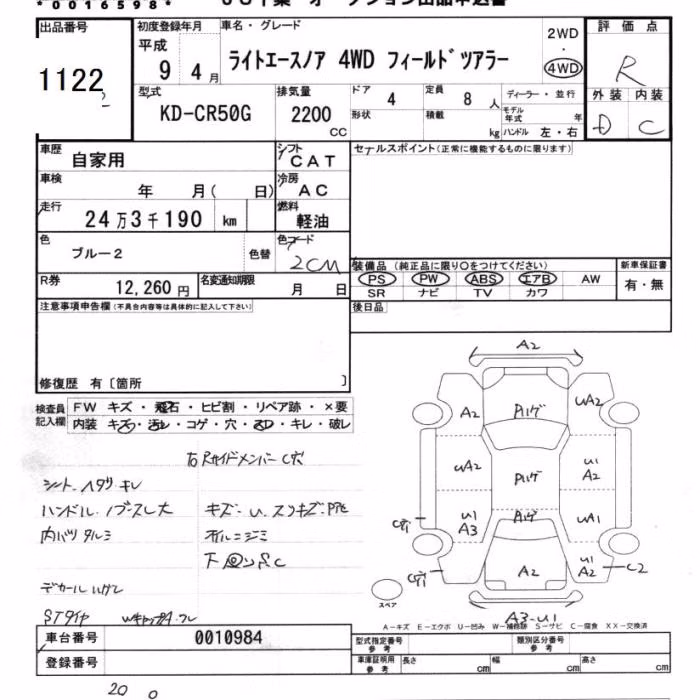 *0016598*
出品番号
1122
初度登録年月
平成
9年4月
車名・グレード
ライトエースノア 4WD フィールドツアラー
2WD
・
4WD
評価点
R
外装 内装
D C
型式
KD-CR50G
排気量
2200
CC
ドア
4
定員
8人
ディーラー・並行
形状
積載
kg
モデル年式
年
ハンドル 左・右
車歴
自家用
シフト
CAT
セールスポイント(正常に機能するものに限ります)
車検
年 月( 日)
冷房
AC
走行
24万3千190 km
燃料
軽油
色
ブルー2
色替
色コード
2CM
装備品 (純正品に限り〇をつけてください)
PS PW ABS エアB AW
SR ナビ TV カワ
新車保証書
有・無
R券
12,260円
名変通知期限
月 日
後日品
注意事項申告欄(不具合内容等は具体的に記入して下さい)
修復歴 有〔箇所 〕
検査員記入欄
FW キズ・飛石・ヒビ割・リペア跡・×要
内装 キズ・汚レ・コゲ・穴・スレ・キレ・破レ
右RサイドメンバーC穴
シート ヘタリ キレ
ハンドル ノブスレ大
内バリ タルミ
キズ・U・スリキズ・
オイルニジミ
下 S.C
デカール
STタイヤ
A2
A2
UA2
UA2
U1
A2
U1
A3
UA1
U1
A2
A2
C2
A3-U1
スペア
A-キズ E-エクボ U-凹み W-補修跡 S-サビ C-腐食 XX-交換済
車台番号
0010984
登録番号
型式指定番号
参考
類別区分番号
参考
車庫証明用
参考
長さ
cm
幅
cm
高さ
cm
20 0